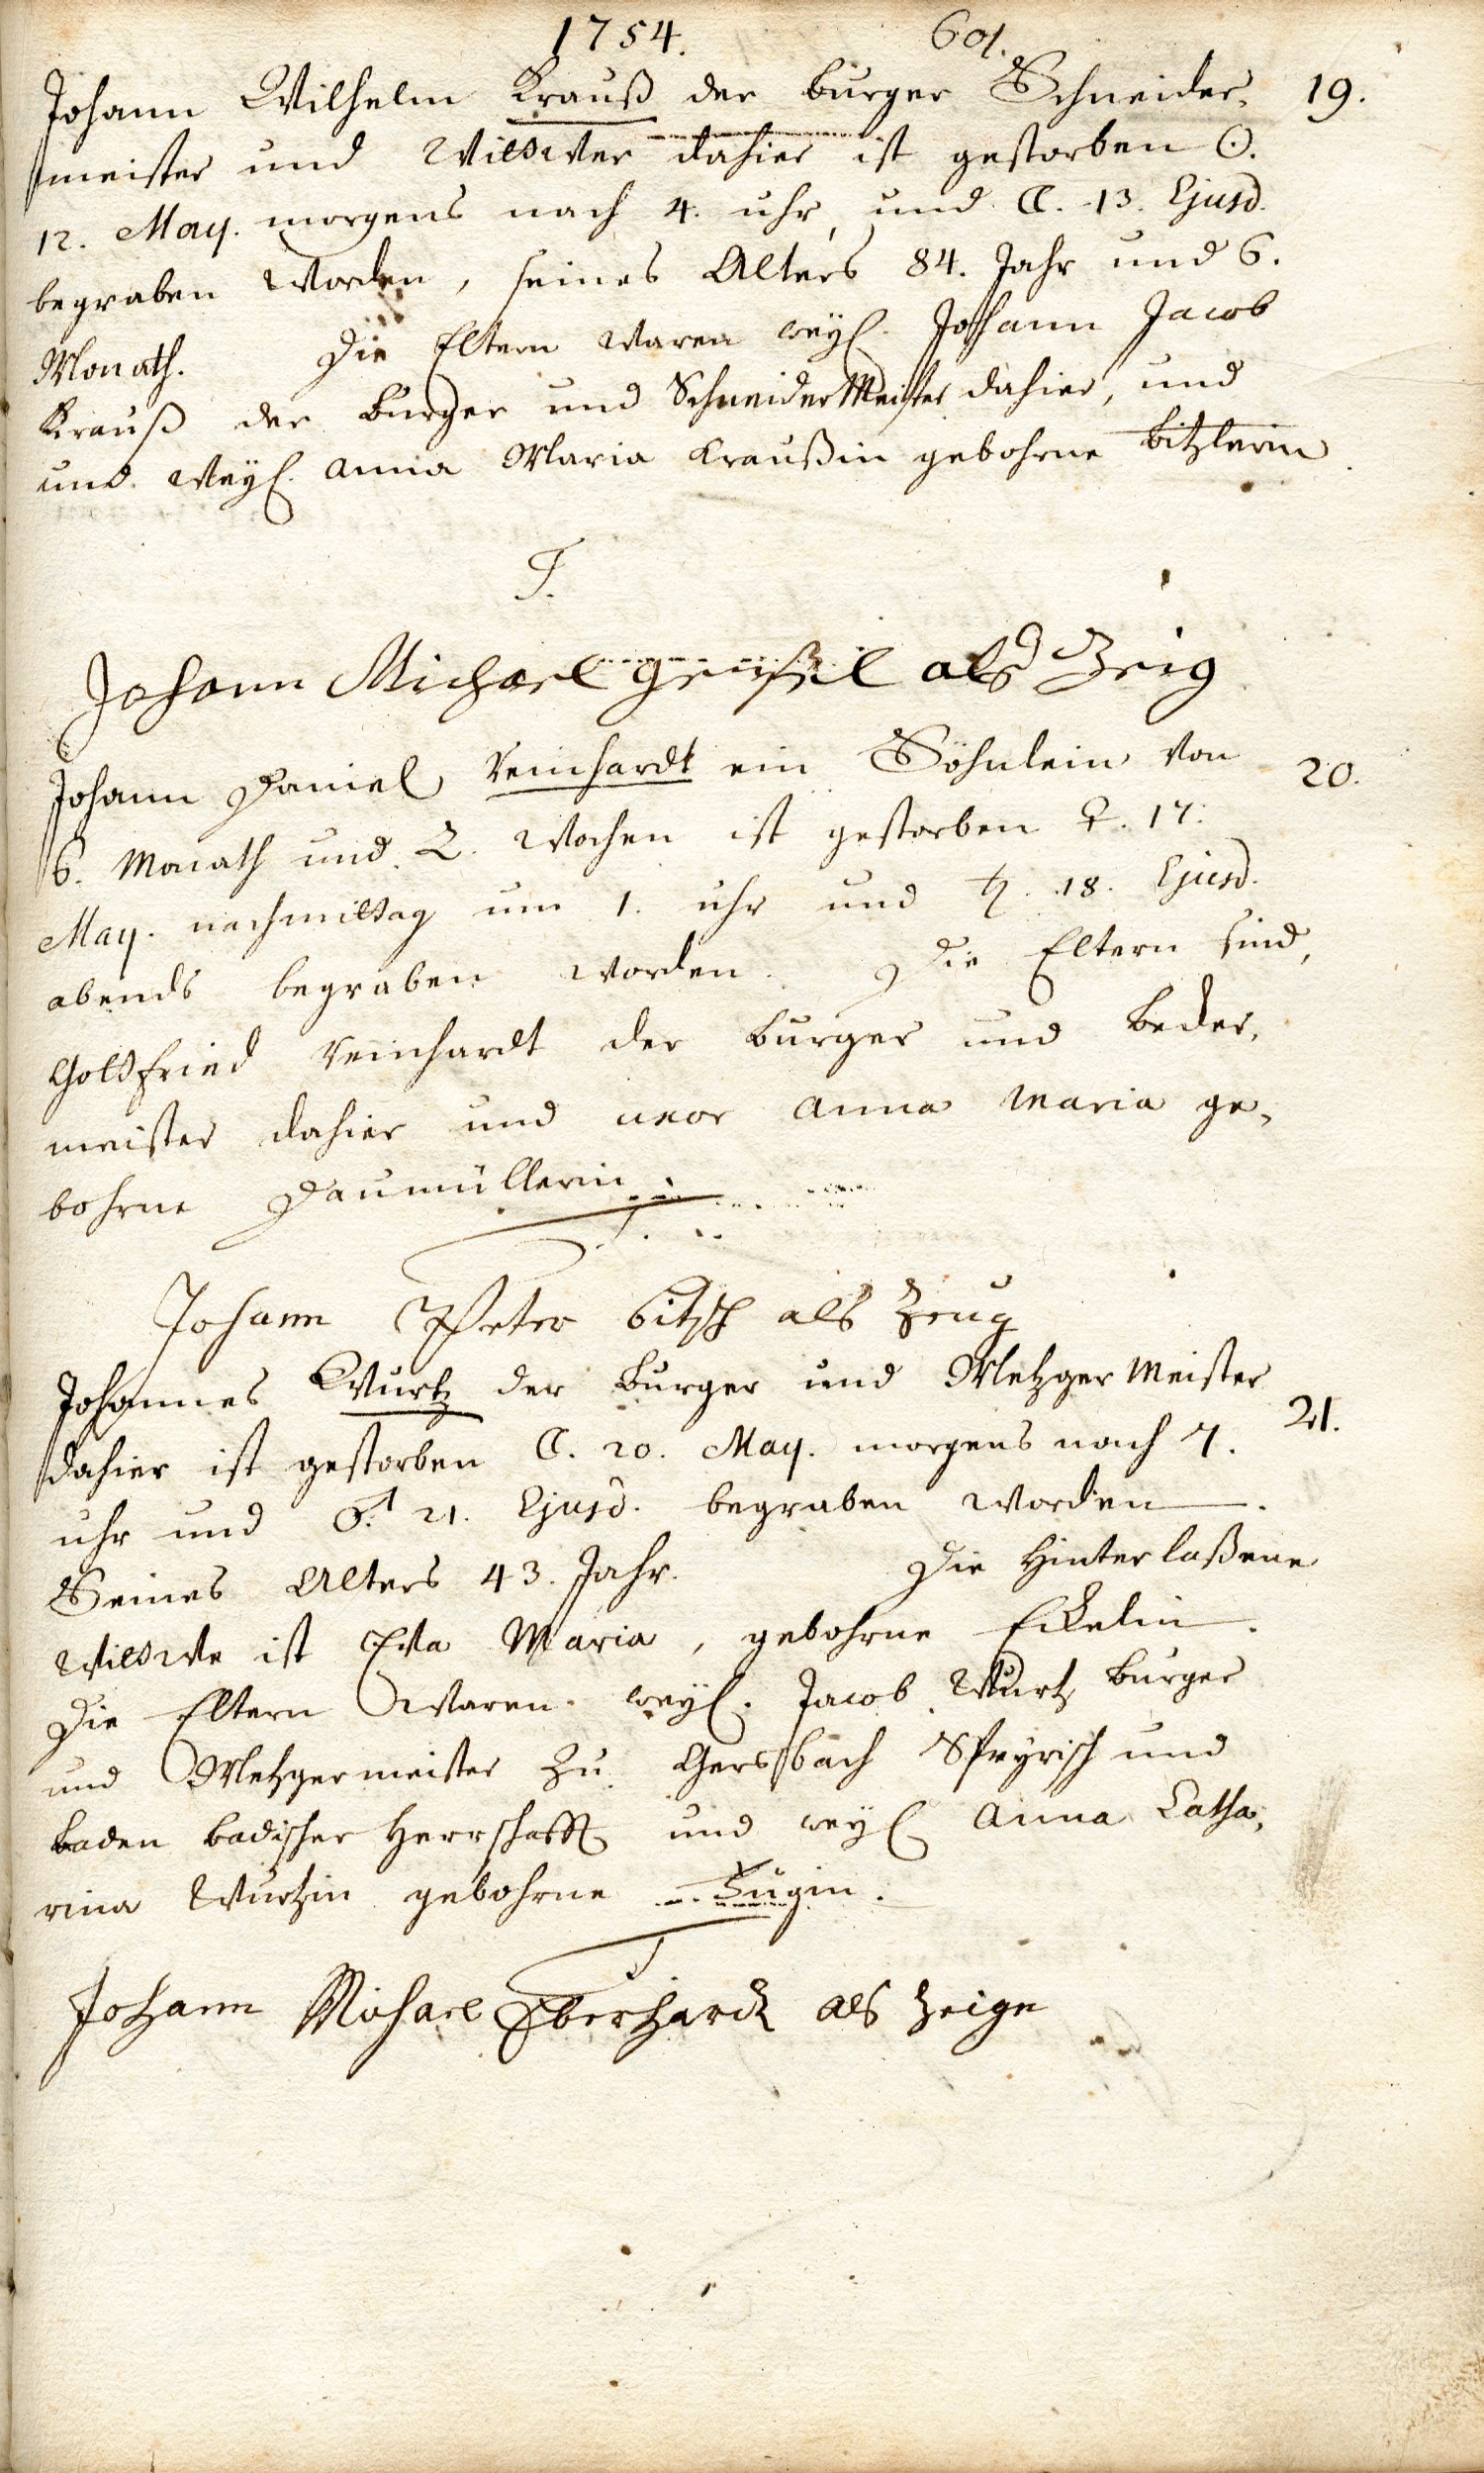 1754. 601.
Johann Wilhelm Krauß der burger Schneider, 19.
meister und Wittwer dahier ist gestorben ☉.
12. May. morgens nach 4. uhr, und ☾. 13. Ejusd.
begraben worden, seines Alters 84. Jahr und 6.
Monath. Die Eltern waren weyl. Johann Jacob
Krauß der burger und SchneiderMeister dahier, und
und weyl. anna Maria Kraußin gebohrne bitzlerin
T.
Johann Michael als Zeig
Johann Daniel reinhardt ein Söhnlein von 20.
6. Monath und 2. wochen ist gestorben ♀. 17.
May. nachmittag um 1. uhr und ♄. 18. Ejusd.
abends begraben worden. Die Eltern sind,
Gottfried reinhardt der burger und beder,
meister dahier und uxor anna maria ge,
bohrne Daumüllerin.
T.
Johann Peter bitsch als Zeug
Johannes Wurtz der burger und Metzger Meister
dahier ist gestorben ☾. 20. May. morgens nach 7. 21.
uhr und ♂. 21. Ejusd. begraben worden.
Seines Alters 43. Jahr. Die Hinterlaßene
Wittwe ist Eva Maria, gebohrne Eckelin.
Die Eltern waren weyl. Jacob Wurtz burger
und Metzgermeister zu Gersbach Speyrisch und
baden badischer Herrschafft und weyl. Anna Catha,
rina Wurtzin gebohrne Zugin.
T
Johann Michael Eberhardt als Zeige